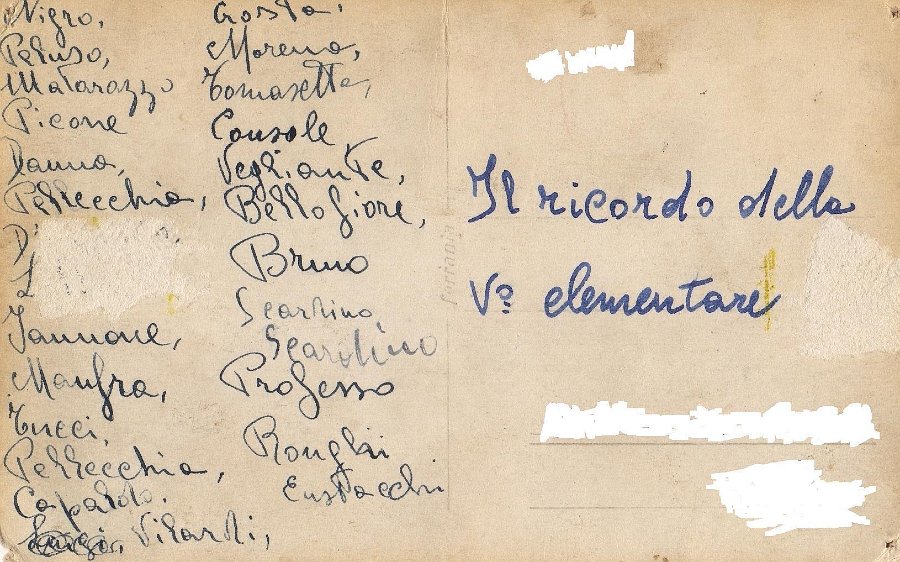 Nigro,
Peluso,
Matarazzo
Picone
Ianno,
Pellecchia,
Iannone,
Manfra,
Tucci,
Pellecchia,
Capaldo.
Vitardi,
Grosso,
Moreno,
Tomasetta,
Console,
Vegliante,
Bellofiore,
Bruno
Scardino
Scardino
Professo
Ronghi
Eustacchi
Il ricordo della
Vª elementare